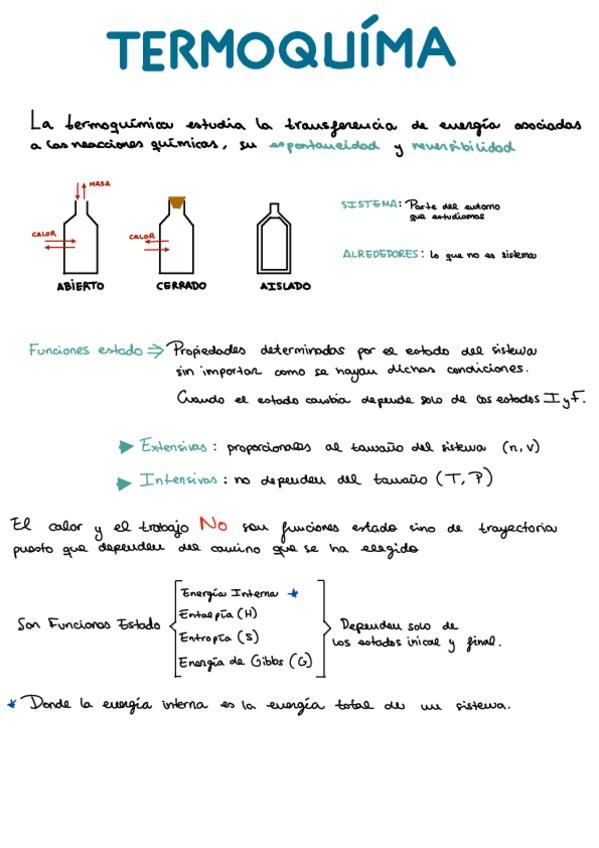 TERMOQUÍMA
La termoquímica estudia la transferencia de energía asociadas
a las reacciones químicas, su espontaneidad y reversibilidad
MASA
CALOR
CALOR
ABIERTO
CERRADO
AISLADO
SISTEMA: Parte del entorno
que estudiamos
ALREDEDORES: lo que no es sistema
Funciones estado ⇒ Propiedades determinadas por el estado del sistema
sin importar como se hayan dichas condiciones.
Cuando el estado cambia depende solo de los estados I y F.
► Extensivas: proporcionales al tamaño del sistema (n, v)
► Intensivas: no dependen del tamaño (T, P)
El calor y el trabajo No son funciones estado sino de trayectoria
puesto que dependen del camino que se ha elegido
Son Funciones Estado
Energía Interna *
Entalpía (H)
Entropía (S)
Energía de Gibbs (G)
Dependen solo de
los estados inical y final.
* Donde la energía interna es la energía total de un sistema.